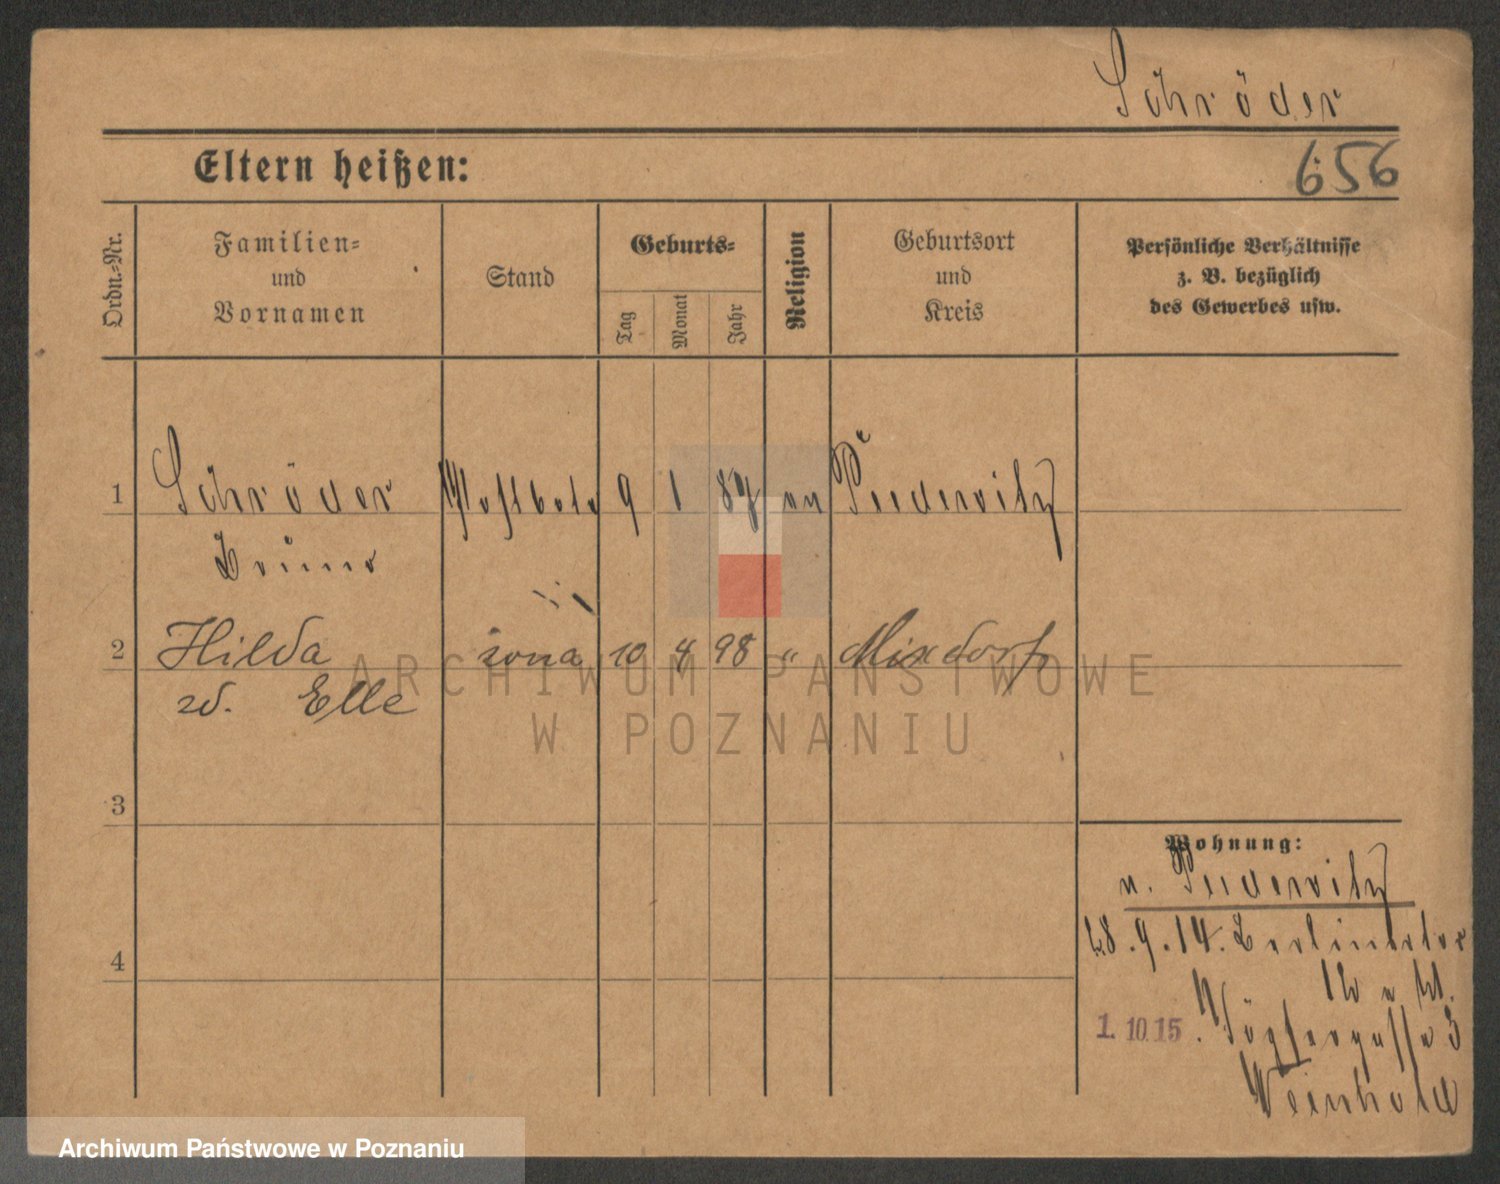 Schröder
Eltern heißen:
656
Ordn.-Nr.
Familien-
und
Vornamen
Stand
Geburts-
Tag
Monat
Jahr
Religion
Geburtsort
und
Kreis
Persönliche Verhältnisse
z. B. bezüglich
des Gewerbes usw.
1
Schröder Postbote 9 1 87 ev Pudewitz
Bruno
2
Hilda żona 10 4 98 " Mixdorf
zd. Elle
ARCHIWUM PAŃSTWOWE
W POZNANIU
3
4
Wohnung:
v. Pudewitz
28.9.14. Berlinertor
12
1.10.15.
3
Weinhold
Archiwum Państwowe w Poznaniu